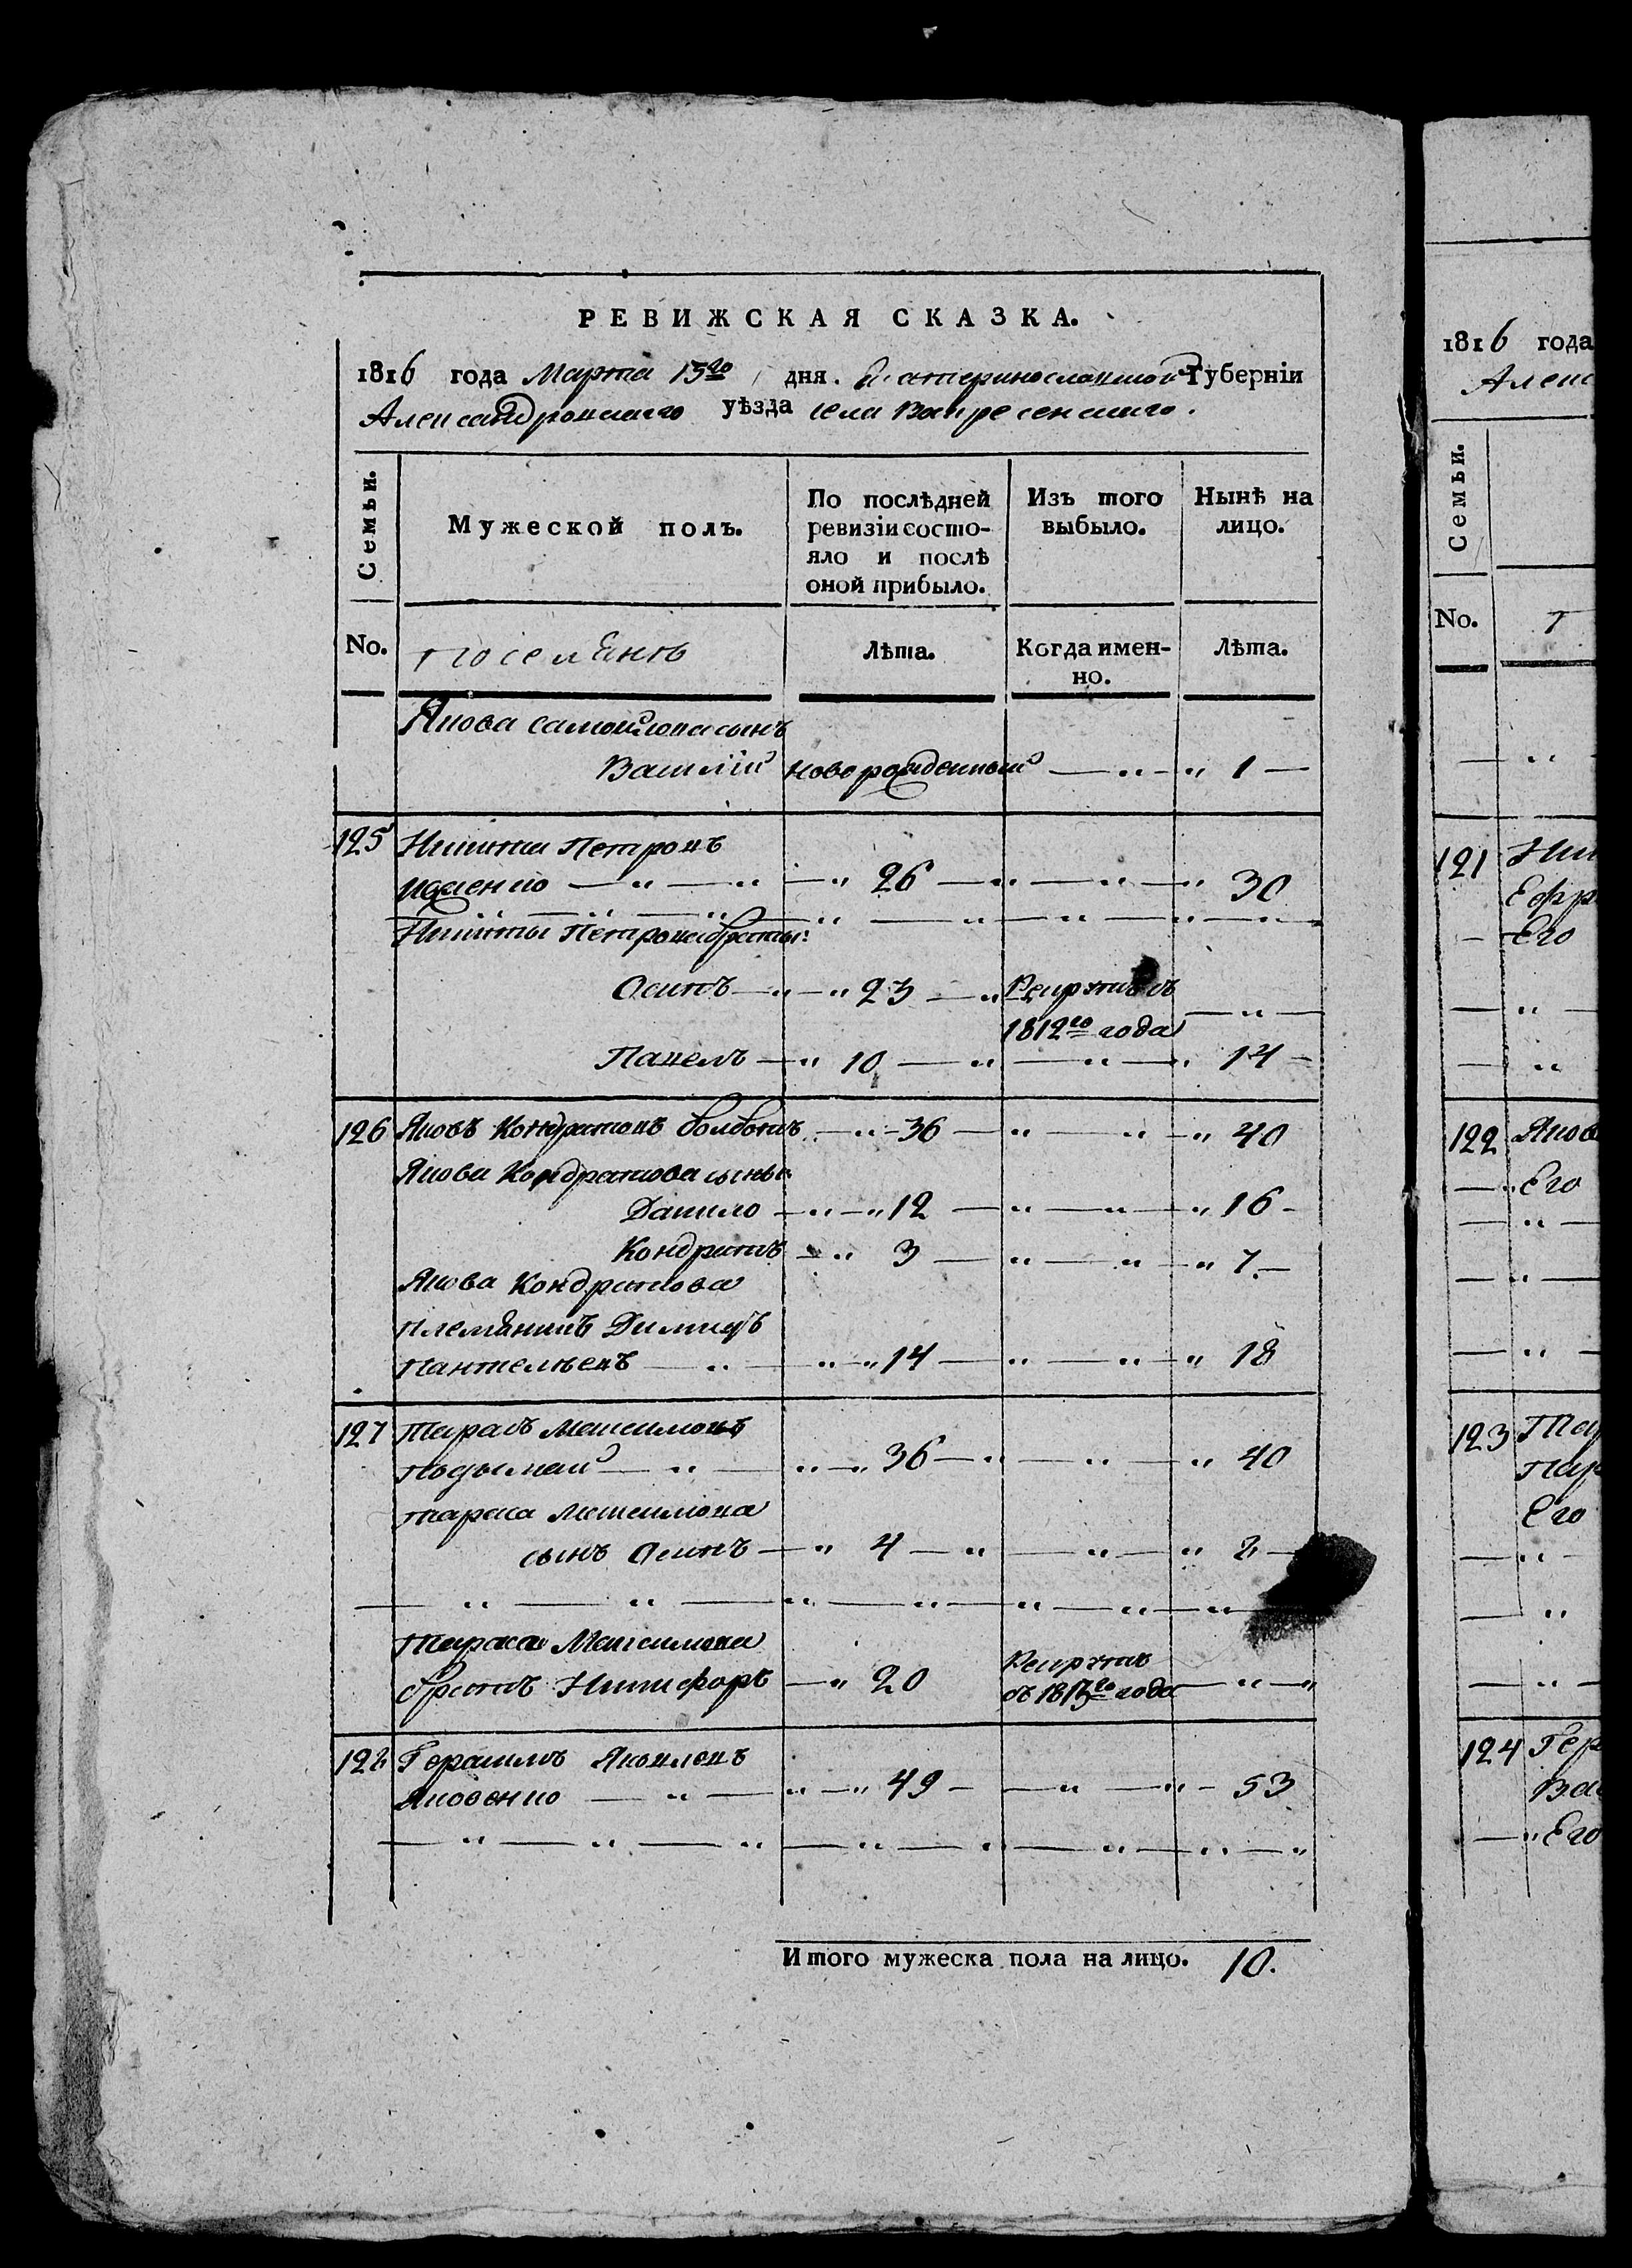 РЕВИЖСКАЯ СКАЗКА.
1816 года Марта 15го дня. Екатеринославской Губерніи
Александровскаго уѣзда села Воскресенскаго.
Семьи.
Мужеской полъ.
По послѣдней ревизіи состо-
яло и послѣ
оной прибыло.
Изъ того
выбыло.
Нынѣ на
лицо.
No.
Поселянъ
Лѣта.
Когда имен-
но.
Лѣта.
Якова Самойлова сынъ
Василій новорожденный — " — " 1 —
125 Никита Петровъ
— " — " — " 26 — " — " — " 30
Никиты Петрова братья:
Осипъ — " — " 23 — " Рекрутъ съ
1812го года — " —
Павелъ — " 10 — " — " — " 14 —
126 Яковъ Кондратовъ — " — 36 — " " — " 40
Якова Кондратова сынья
Данило — " — " 12 — " — " — " 16 —
Кондратъ — " 3 — " — " — " 7. —
Якова Кондратова
племянникъ
Пантелѣевъ — " — " — " 14 — " — " — " 18
127 Тарасъ Максимовъ
— " — " — " 36 — " — " — " 40
Тараса Максимова
сынъ Осипъ — " 4 — " — " — " 8 —
Тараса Максимова
братъ Никифоръ — " 20 Рекрутъ
въ 1813го года — " — "
128 Герасимъ Яковлевъ
Яковенко — " — " — " 49 — — " — " — 53
Итого мужеска пола на лицо. 10.
1816 года
Алекс
Семьи.
No.
121
Ефр
Его
122 Яков
Его
123 Тар
Его
124 Гер
Его